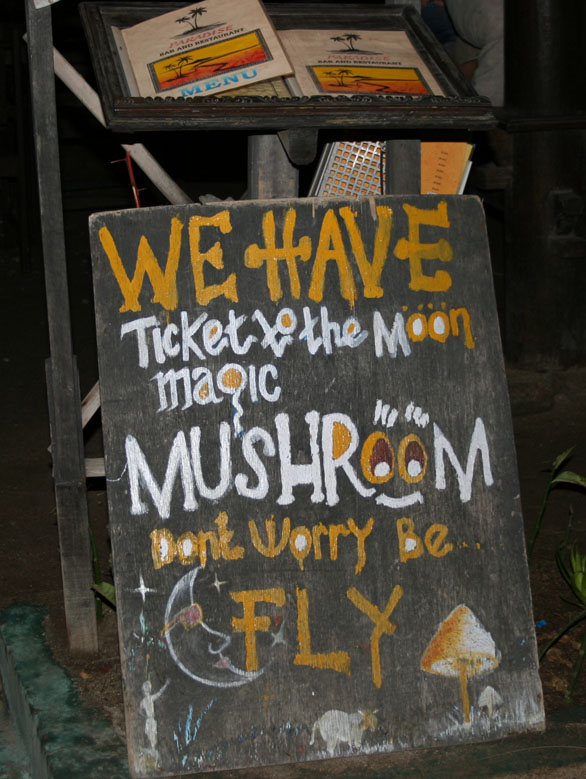 PARADISE
BAR AND RESTAURANT
MENU
PARADISE
BAR AND RESTAURANT
WE HAVE
Ticket to the Moon
magic
MUSHROOM
Dont Worry Be...
FLY